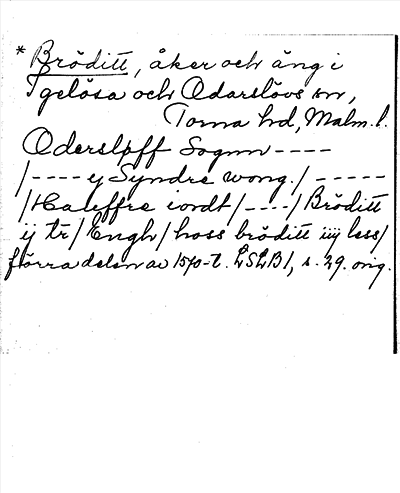 * Bröditt, åker och äng i
Igelösa och Odarslövs snr,
Torna hd, Malm. l.
Oderslöff Sognn ----
/---- y Syndre wong. / -----
/ Haleffre iordt / ---- / Bröditt
ij tr / Engh / hoss bröditt iiij less /
förra delen av 1570-t. LSLB1, s. 29. orig.